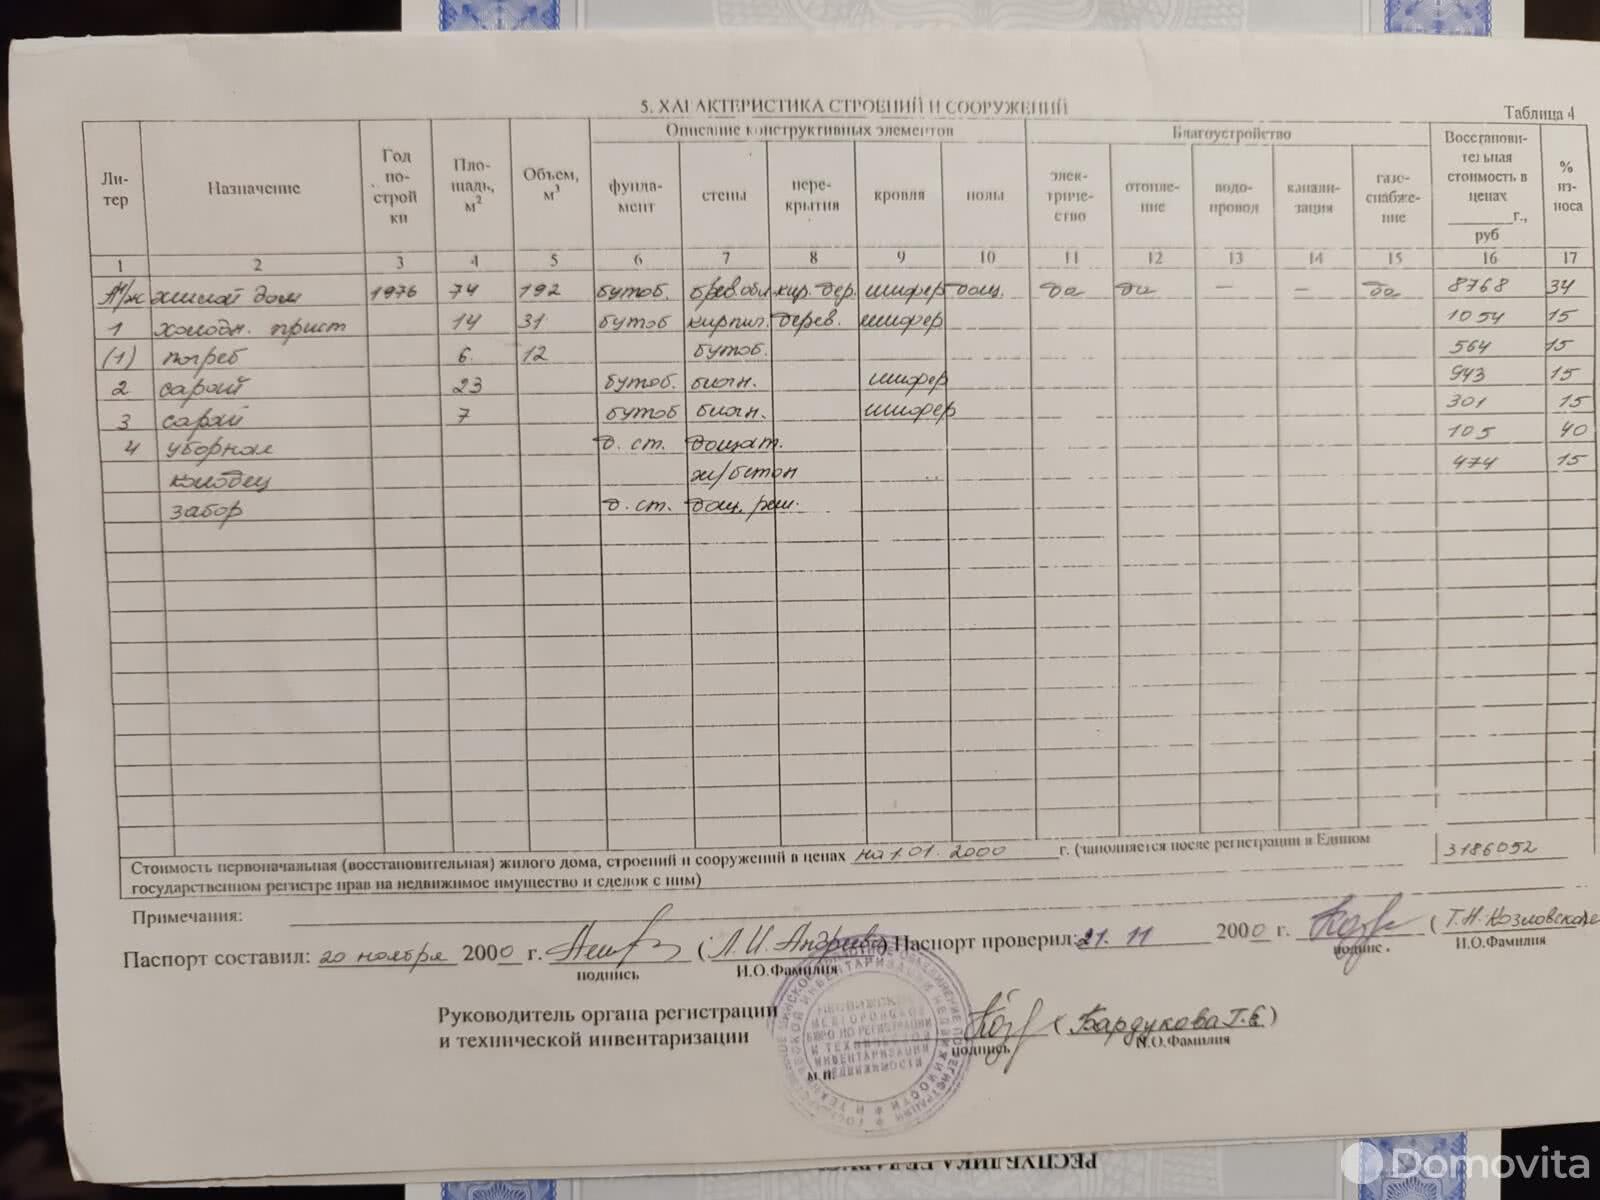 5. ХАРАКТЕРИСТИКА СТРОЕНИЙ И СООРУЖЕНИЙ
Таблица 4
Ли-
тер
Назначение
Год
по-
строй
ки
Пло-
щадь,
м²
Объем,
м³
Описание конструктивных элементов
фунда-
мент
стены
пере-
крытия
кровля
полы
Благоустройство
элек-
триче-
ство
отопле-
ние
водо-
провод
канали-
зация
газо-
снабже-
ние
Восстанови-
тельная
стоимость в
ценах
______г.,
руб
%
из-
носа
1 2 3 4 5 6 7 8 9 10 11 12 13 14 15 16 17
А1/ж жилой дом 1976 74 192 бутоб. брев.обл кир. дер. шифер дощ. да да – – да 8768 34
1 холодн. прист 14 31 бутоб кирпич. дерев. шифер 1054 15
(1) погреб 6 12 бутоб. 564 15
2 сарай 23 бутоб. блочн. шифер 943 15
3 сарай 7 бутоб блочн. шифер 301 15
4 уборная д. ст. дощат. 105 40
колодец ж/бетон 474 15
забор д. ст. дощ. реш.
Стоимость первоначальная (восстановительная) жилого дома, строений и сооружений в ценах на 1.01.2000 г. (заполняется после регистрации в Едином
государственном регистре прав на недвижимое имущество и сделок с ним) 3186052
Примечания:
Паспорт составил: 20 ноября 2000 г. (Л.И. Андреева) Паспорт проверил: 21. 11 2000 г. (Т.Н. Козловская
подпись И.О.Фамилия подпись И.О.Фамилия
Руководитель органа регистрации
и технической инвентаризации (Бардукова Т.Е)
подпись И.О.Фамилия
м.п.
БЮРО ПО РЕГИСТРАЦИИ
И ТЕХНИЧЕСКОЙ
ИНВЕНТАРИЗАЦИИ
НЕДВИЖИМОСТИ
РЕСПУБЛИКА БЕЛАРУСЬ
Domovita